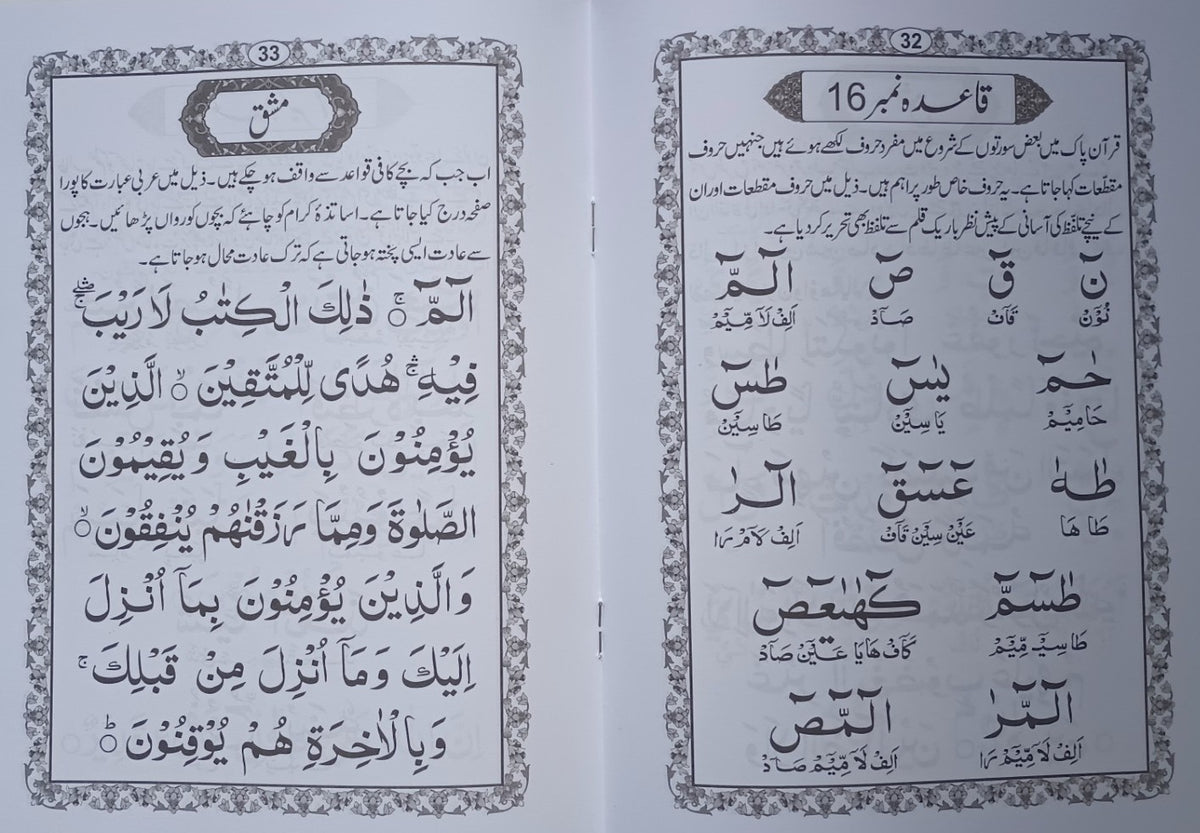 32
قاعدہ نمبر 16
قرآن پاک میں بعض سورتوں کے شروع میں مفرد حروف لکھے ہوئے ہیں جنہیں حروف
مقطّعات کہا جاتا ہے۔ یہ حروف خاص طور پر اہم ہیں۔ ذیل میں حروف مقطعات اور ان
کے نیچے تلفّظ کی آسانی کے پیش نظر باریک قلم سے تلفظ بھی تحریر کر دیا ہے۔
نٓ قٓ صٓ الٓمّٓ
نُوْنْ قَآفْ صَآدْ اَلِفْ لَآ مِّیْٓمْ
حٰمٓ یٰسٓ طٰسٓ
حَامِیْٓمْ یَا سِیْٓنْ طَا سِیْٓنْ
طٰهٰ عٓسٓقٓ الٓرٰ
طَا هَا عَیْٓنْ سِیْٓنْ قَآفْ اَلِفْ لَآمْ رَا
طٰسٓمّٓ کٓهٰیٰعٓصٓ
طَا سِیٓـمِّیْٓمْ کَآفْ هَا یَا عَیْٓنْ صَآدْ
الٓمّٓرٰ الٓمّٓصٓ
اَلِفْ لَآ مِّیْٓمْ رَا اَلِفْ لَآ مِّیْٓمْ صَآدْ
33
مشق
اب جب کہ بچے کافی قواعد سے واقف ہو چکے ہیں۔ ذیل میں عربی عبارت کا پورا
صفحہ درج کیا جاتا ہے۔ اساتذۂ کرام کو چاہئے کہ بچوں کو رواں پڑھائیں۔ ہجوں
سے عادت ایسی پختہ ہو جاتی ہے کہ ترک عادت محال ہو جاتا ہے۔
الٓمّٓ ۚ ذٰلِكَ الْكِتٰبُ لَا رَيْبَ ۛۖۚ
فِيْهِ ۛۚ هُدًى لِّلْمُتَّقِيْنَ ۙ الَّذِيْنَ
يُؤْمِنُوْنَ بِالْغَيْبِ وَيُقِيْمُوْنَ
الصَّلٰوةَ وَمِمَّا رَزَقْنٰهُمْ يُنْفِقُوْنَ ۙ
وَالَّذِيْنَ يُؤْمِنُوْنَ بِمَآ اُنْزِلَ
اِلَيْكَ وَمَآ اُنْزِلَ مِنْ قَبْلِكَ ۚ
وَبِالْاٰخِرَةِ هُمْ يُوْقِنُوْنَ ؕ